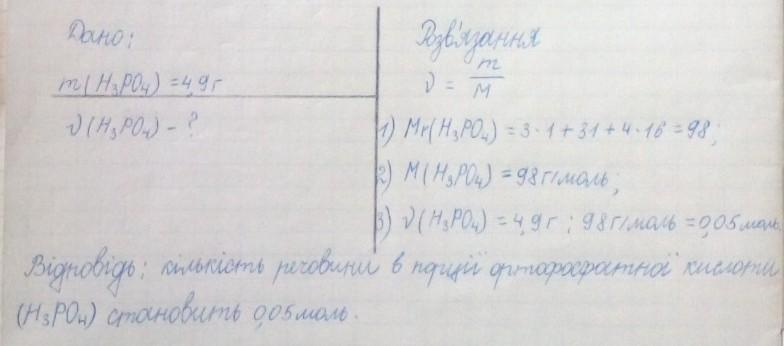 Дано:
m(H₃PO₄) = 4,9 г
ν(H₃PO₄) - ?
Розв'язання
ν = m/M
1) Mr(H₃PO₄) = 3·1 + 31 + 4·16 = 98;
2) M(H₃PO₄) = 98 г/моль;
3) ν(H₃PO₄) = 4,9 г : 98 г/моль = 0,05 моль.
Відповідь: кількість речовини в порції ортофосфатної кислоти
(H₃PO₄) становить 0,05 моль.